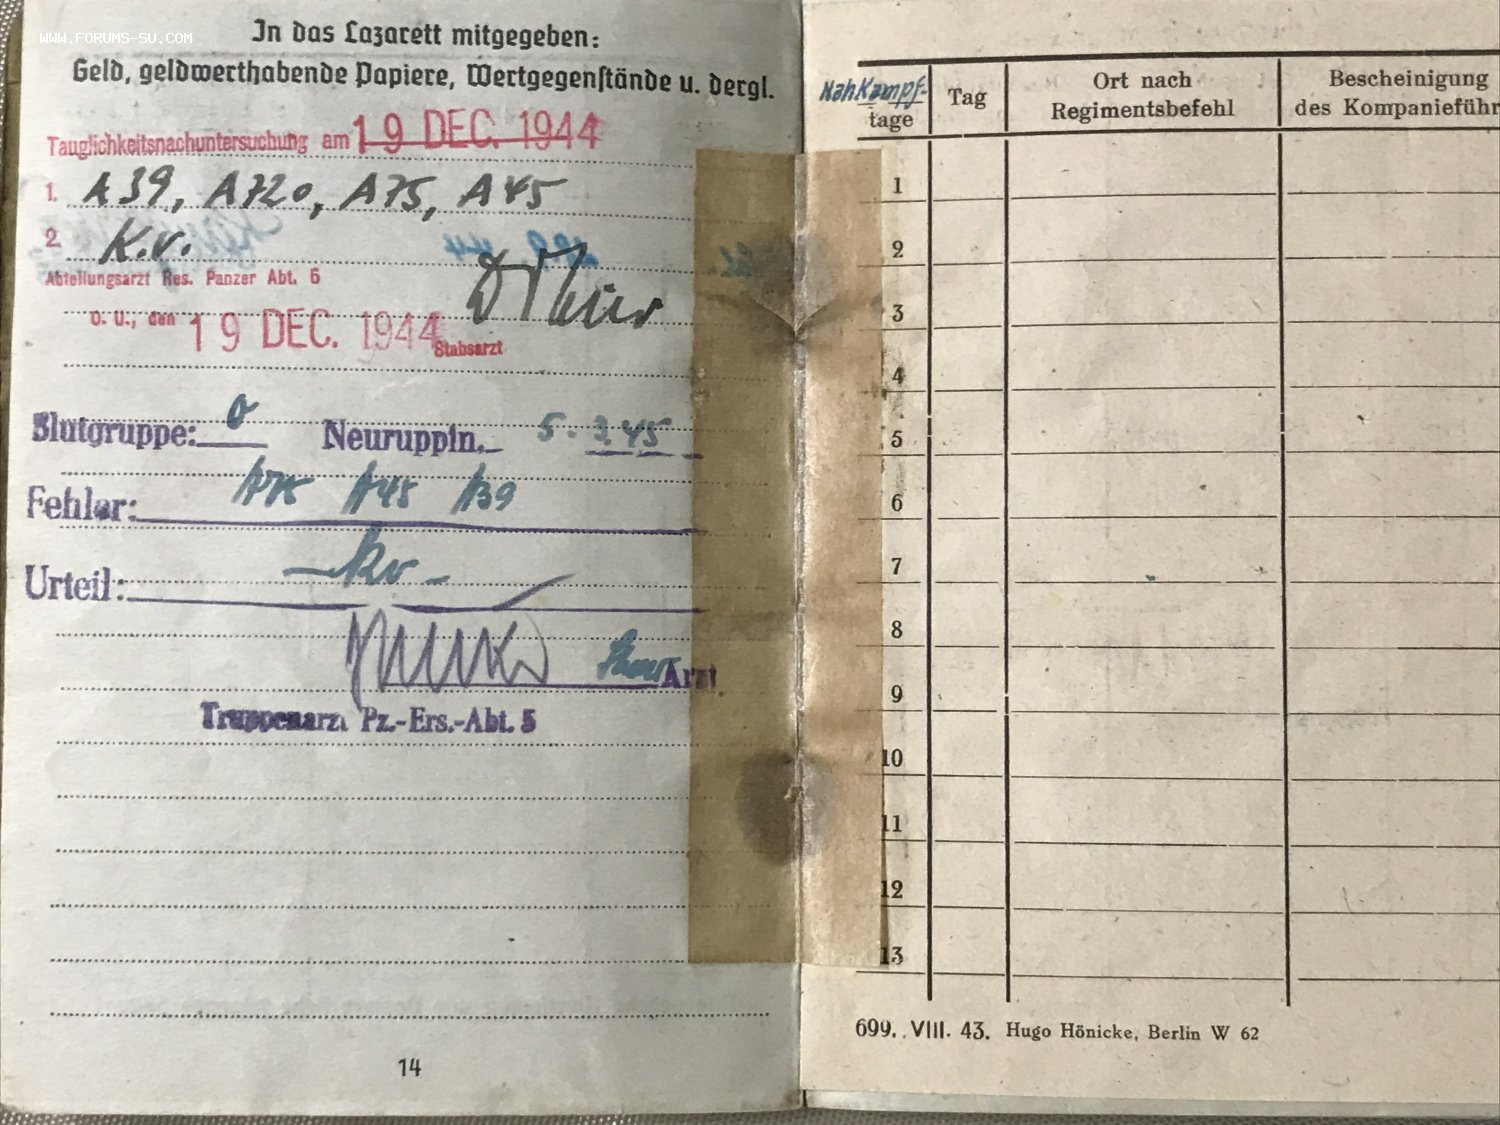 WWW.FORUMS-SU.COM
In das Lazarett mitgegeben:
Geld, geldwerthabende Papiere, Wertgegenstände u. dergl.
Tauglichkeitsnachuntersuchung am 19 DEC. 1944
1. A 39, A 720, A 75, A 45
2. K.v.
Abteilungsarzt Res. Panzer Abt. 6
O. U., den 19 DEC. 1944
Stabsarzt
Blutgruppe: 0 Neuruppin. 5. 3. 45
Fehler: A 75 A 45 A 39
Urteil: - kv -
Arzt
Truppenarzt Pz.-Ers.-Abt. 5
14
Nahkampf-
tage
Tag
Ort nach
Regimentsbefehl
Bescheinigung
des Kompanieführ
1
2
3
4
5
6
7
8
9
10
11
12
13
699. . VIII. 43. Hugo Hönicke, Berlin W 62